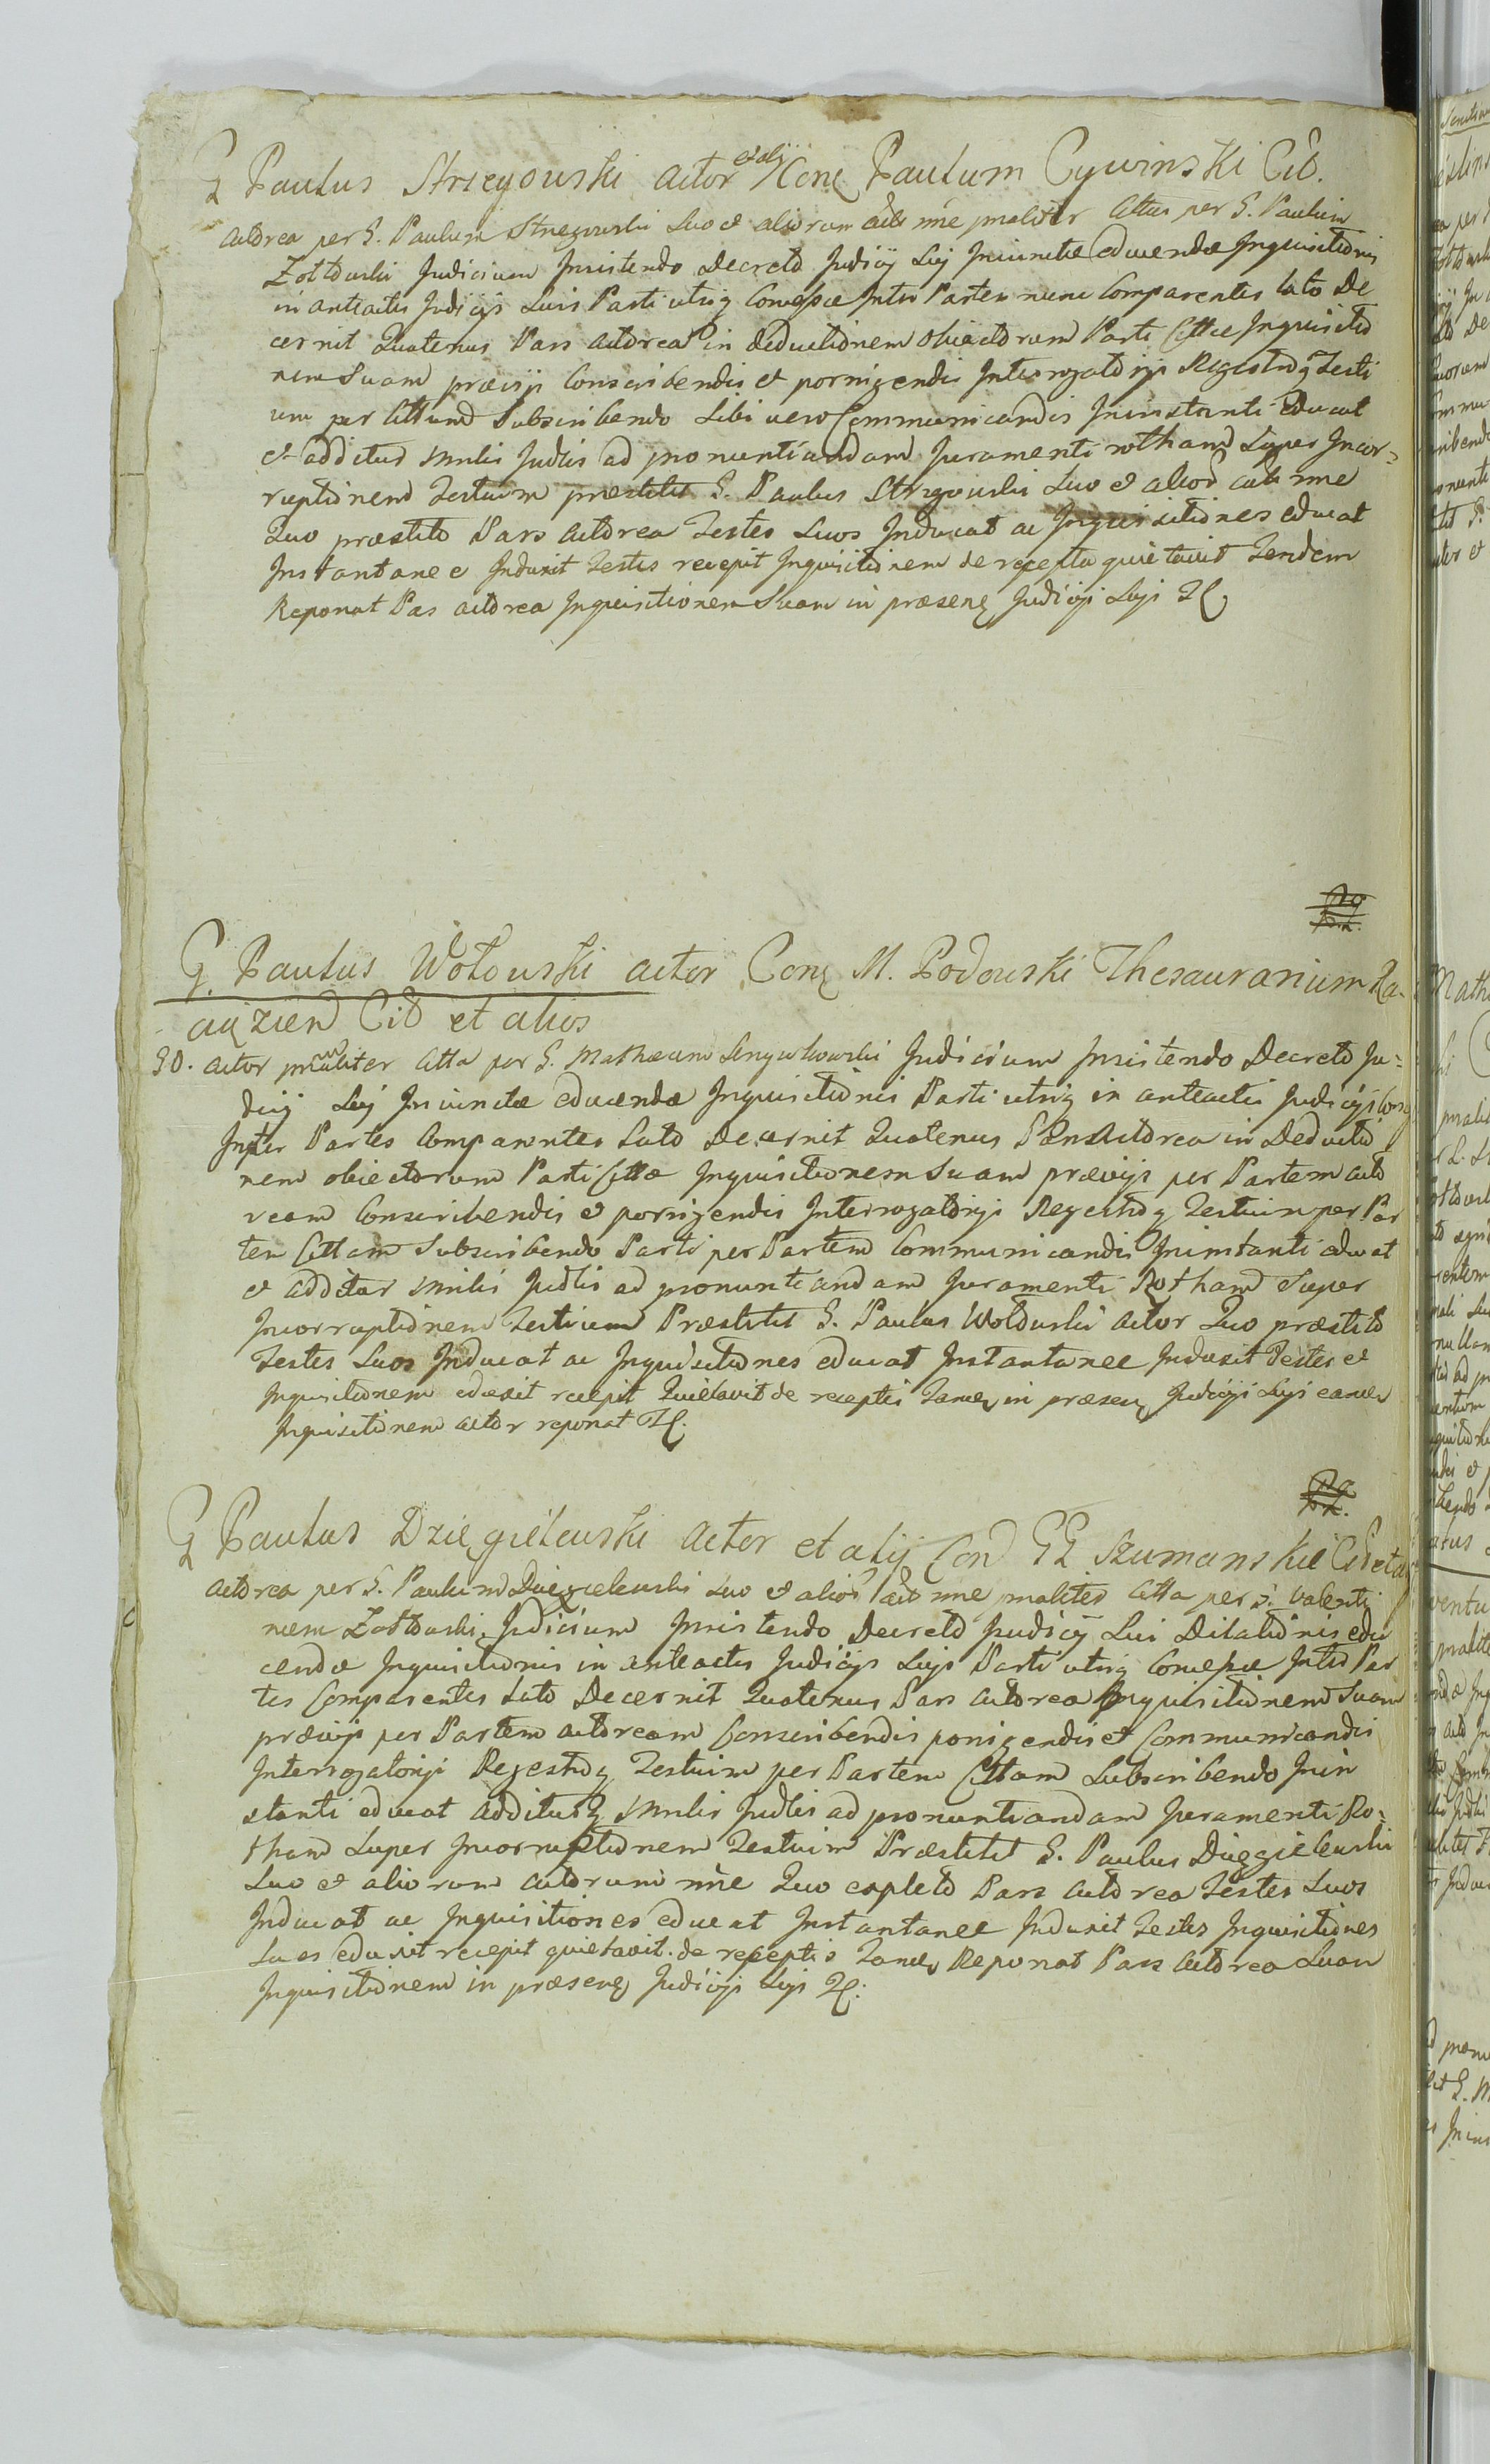 G Paulus Strzegowski Actor et alij Conq Paulum Cywinski Cit.
Actorea per G. Paulum Strzegowski Suo et aliorum Act nne pnaliter Cittus per G. Paulum
Zołtowski Judicium Insistendo Decreto Judicij Sui Injunctæ educendæ Inquisitionis
in anteactis Judicijs Suis Parti utriq Concessæ Inter Partes nunc Comparentes lato De
cernit Quatenus Pars Actorea in deductionem Obiectorum Parti Cittæ Inquisitio
nem Suam prævijs Conscribendis et porrigendis Interrogatorijs Regestroq Testi
um per Cittum Subscribendo Sibi vero Communicandis Ininstanti Educat
et additus Mnlis Judlis ad pronuntiandam Juramenti rotham Super Incor=
ruptionem Testium præstitit G. Paulus Strzegowski Suo et alior Act nne
Quo præstito Pars Actorea Testes Suos Inducat ac Inquisitiones educat
Instantanee Induxit Testes recepit Inquisitionem de recepta quietavit Tandem
Reponat Pars Actorea Inquisitionem Suam in præsenq Judicijs Sujs
G. Paulus Wołowski Actor Conq M. Podowski Thesaurarium Ra-
ciązien Cit et alios
Actor pnaliter Citta per G. Mathæum Judicium Insistendo Decreto Ju=
dicij Sui Injunctæ educendæ Inquisitionis Parti utriq in anteactis Judicijs
Inter Partes Comparentes Lato Decernit Quatenus Pars Actorea in Deductio
nem obiectorum Parti Cittæ Inquisitionem Suam prævijs per Partem Acto
ream Conscribendis et porrigendis Interrogatorijs Regestroq Testium per Par
tem Cittam Subscribendo Parti per Partem Communicandis Ininstanti educat
et additur Mnlis Judlis ad pronuntiandam Juramenti Rotham Super
Incorruptionem Testium Præstitit G. Paulus Wołowski Actor Quo præstito
Testes Suos Inducat ac Inquisitiones educat Instantanee Induxit Testes et
Inquisitionem eduxit recepit Quietavit de receptis Tandem in præsenq Judicijs Sujs eandem
Inquisitionem Actor reponat
G Paulus Dzięgielewski Actor et alij Con GG Szumanskie Cit et
Actorea per G. Paulum Dzięgielewski Suo et alior Act nne pnaliter Citta per G. Valenti
num Zołtowski Judicium Insistendo Decreto Judicij Sui Dilationis edu
cendæ Inquisitionis in anteactis Judicijs Sujs Parti utriq Concessæ Inter Par
tes Comparentes Lato Decernit Quatenus Pars Actorea Inquisitionem Suam
prævijs per Partem Actoream Conscribendis porrigendis et Communicandis
Interrogatorijs Regestroq Testium per Partem Cittam Subscribendo Inin
stanti educat additusq Mnlis Judlis ad pronuntiandam Juramenti Ro=
tham Super Incorruptionem Testium Præstitit G. Paulus Dzięgielewski
Suo et aliorum Actorum nne Quo expleto Pars Actorea Testes Suos
Inducat ac Inquisitiones educat Instantanee Induxit Testes Inquisitiones
Suas eduxit recepit quietavit de receptis Tandem Reponat Pars Actorea Suam
Inquisitionem in præsenq Judicijs Sujs